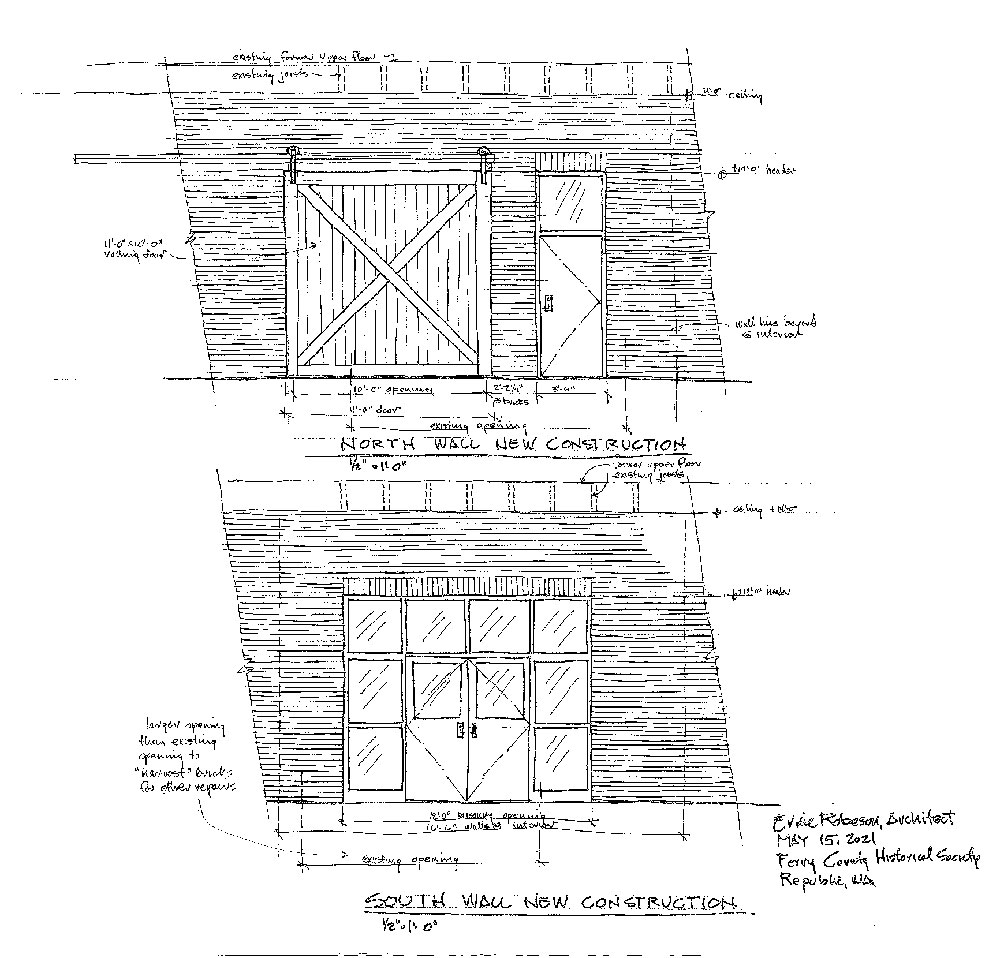 existing former upper floor
existing joists
ceiling
header
11'-0" x 12'-0"
rolling door
wall line beyond
@ interior
10'-0" opening
2'-2¼"
3'-4"
11'-0" door
existing opening
NORTH WALL NEW CONSTRUCTION
½" = 1'-0"
former upper floor
existing joists
ceiling
header
larger opening
than existing
opening to
"harvest" bricks
for other repairs
masonry opening
walls @ interior
existing opening
Architect
MAY 15, 2021
Ferry County Historical Society
Republic, WA
SOUTH WALL NEW CONSTRUCTION
½" = 1'-0"